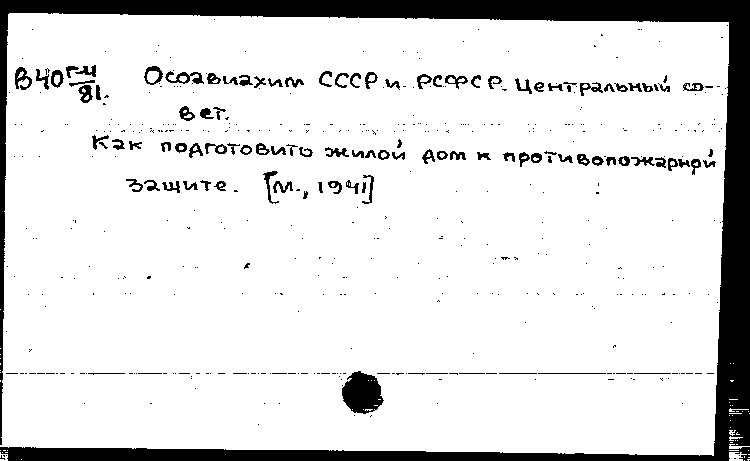 В40 Г-4/81. Осоавиахим СССР и РСФСР. Центральный со-
вет.
Как подготовить жилой дом к противопожарной
защите. [М., 1941]